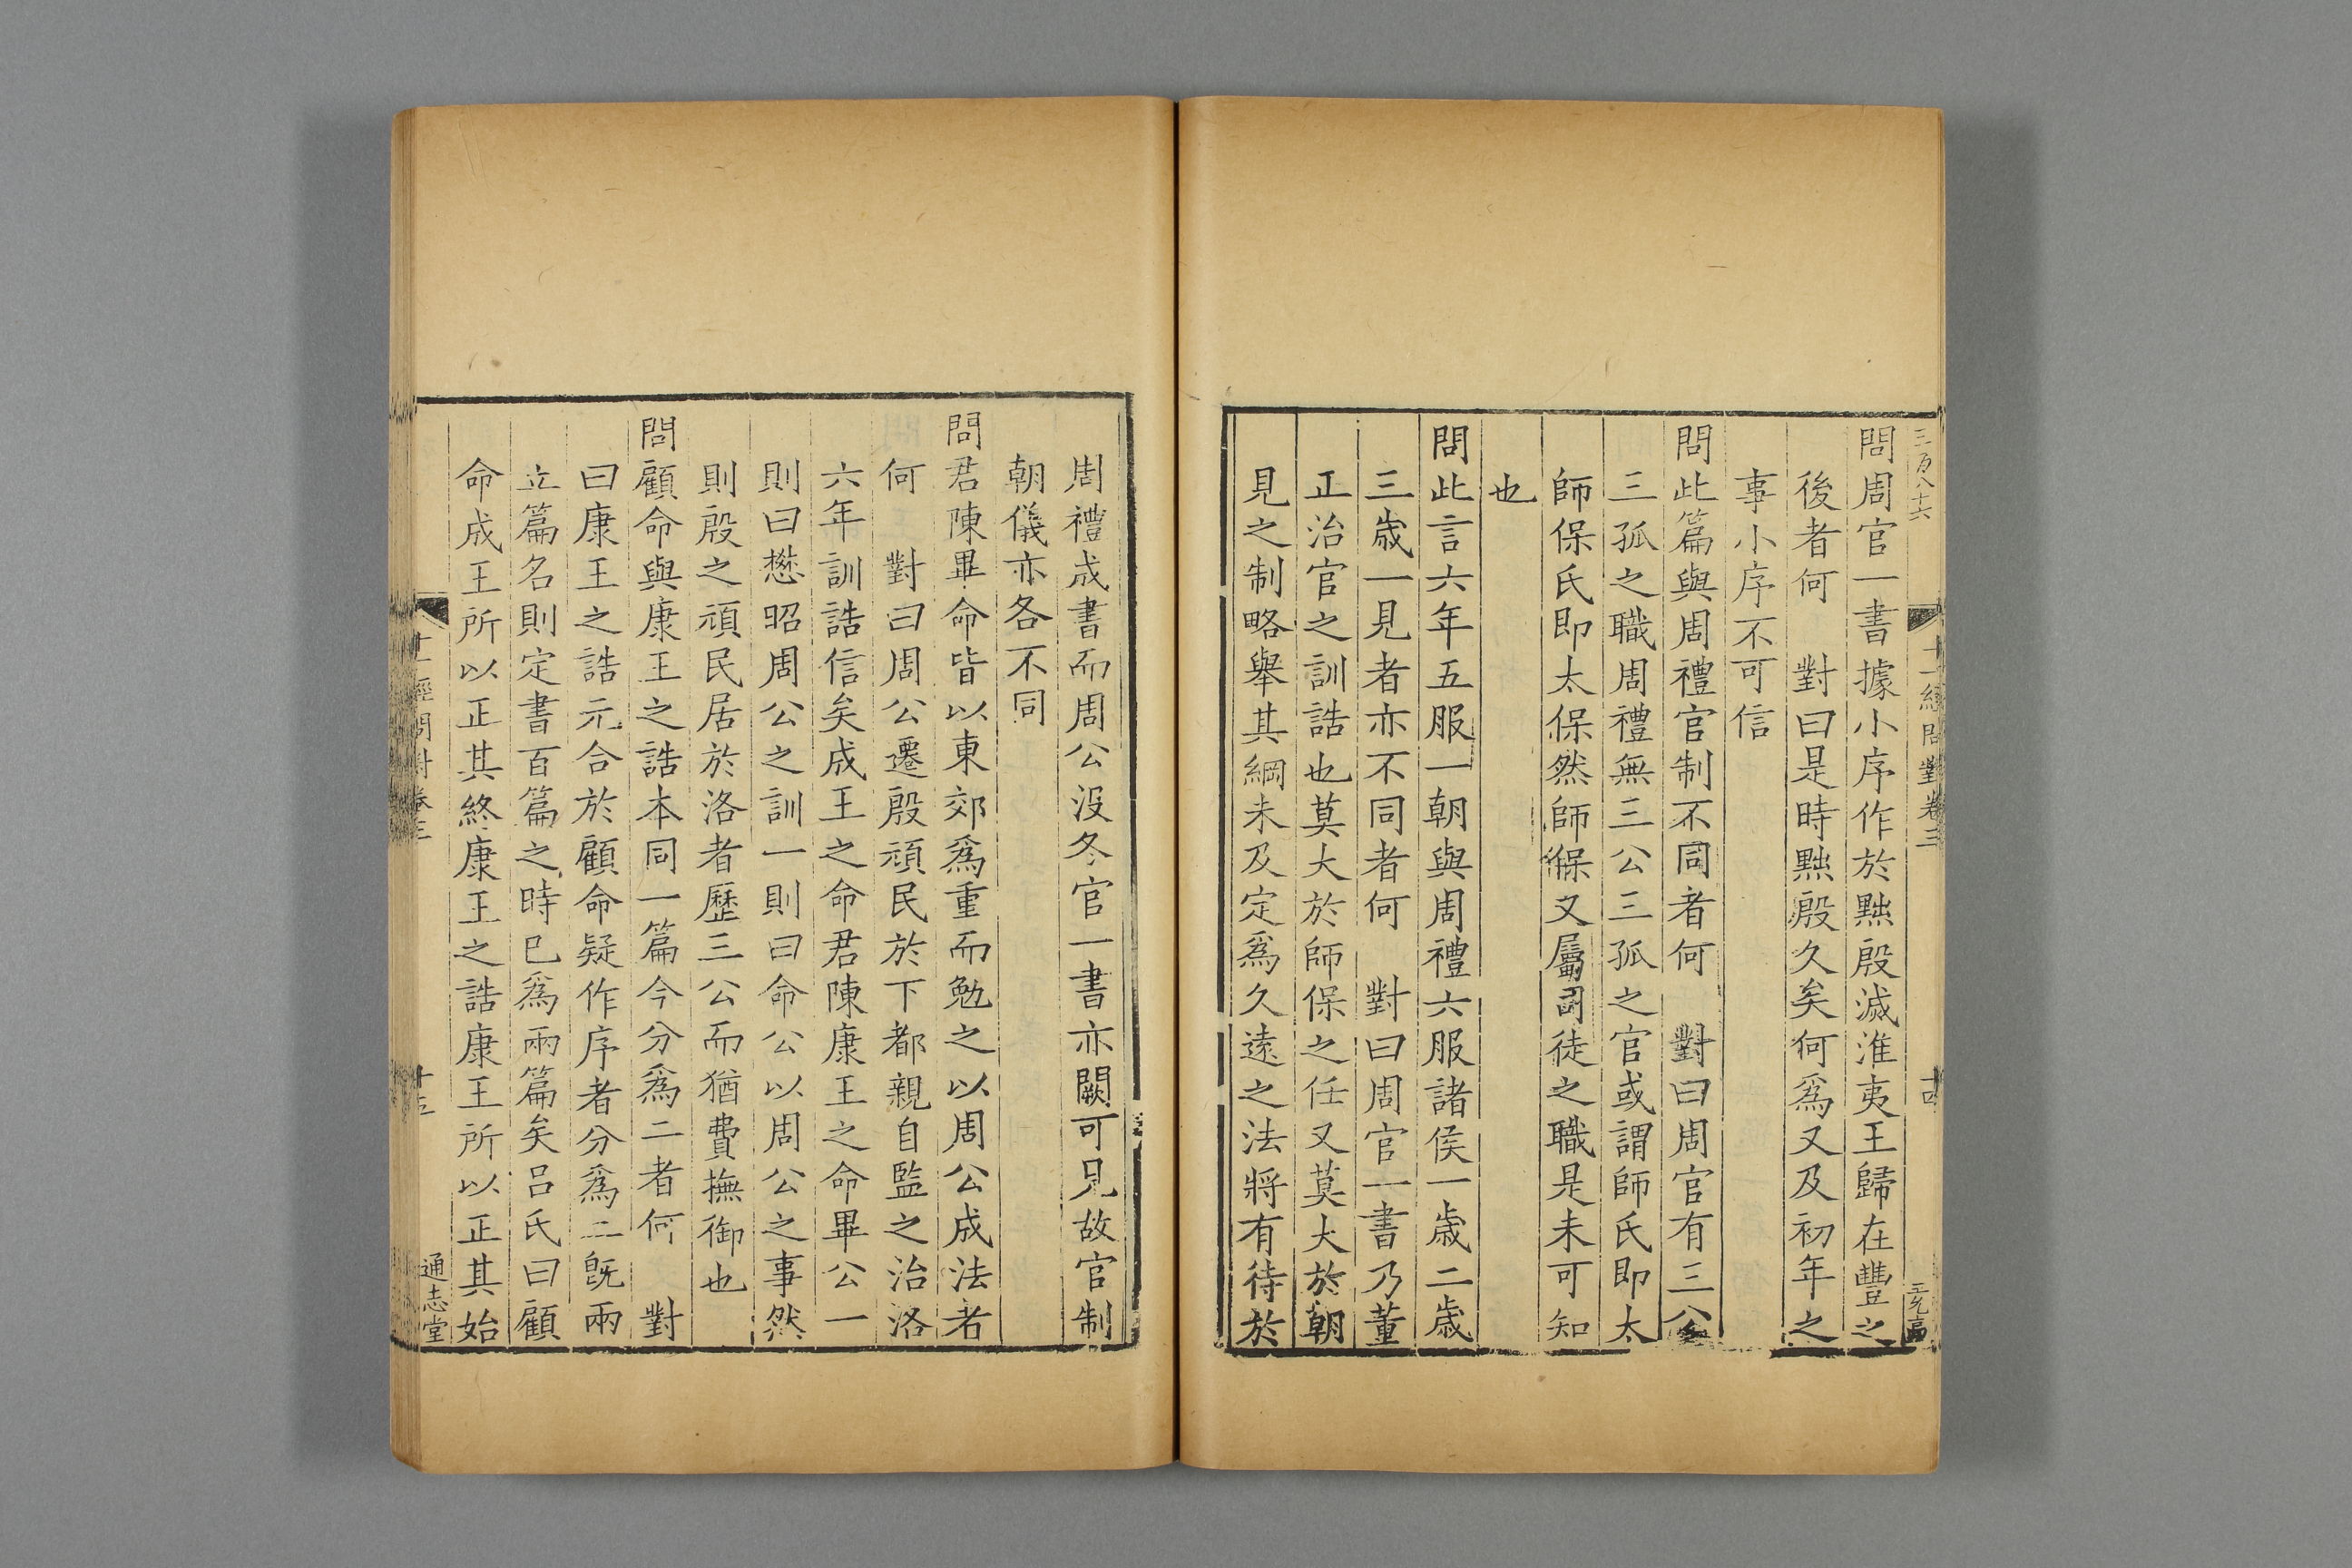 三百八十六
十一經問對卷三
十四
問周官一書據小序作於黜殷滅淮夷王歸在豐之
後者何　對曰是時黜殷久矣何爲又及初年之
事小序不可信
問此篇與周禮官制不同者何　對曰周官有三公
三孤之職周禮無三公三孤之官或謂師氏即太
師保氏即太保然師保又屬司徒之職是未可知
也
問此言六年五服一朝與周禮六服諸侯一歲二歲
三歲一見者亦不同者何　對曰周官一書乃董
正治官之訓誥也莫大於師保之任又莫大於朝
見之制略舉其綱未及定爲久遠之法將有待於
周禮成書而周公没冬官一書亦闕可見故官制
朝儀亦各不同
問君陳畢命皆以東郊爲重而勉之以周公成法者
何　對曰周公遷殷頑民於下都親自監之治洛
六年訓誥信矣成王之命君陳康王之命畢公一
則曰懋昭周公之訓一則曰命公以周公之事然
則殷之頑民居於洛者歷三公而猶費撫御也
問顧命與康王之誥本同一篇今分爲二者何　對
曰康王之誥元合於顧命疑作序者分爲二旣兩
立篇名則定書百篇之時已爲兩篇矣呂氏曰顧
命成王所以正其終康王之誥康王所以正其始
十一經問對卷三
十五
通志堂